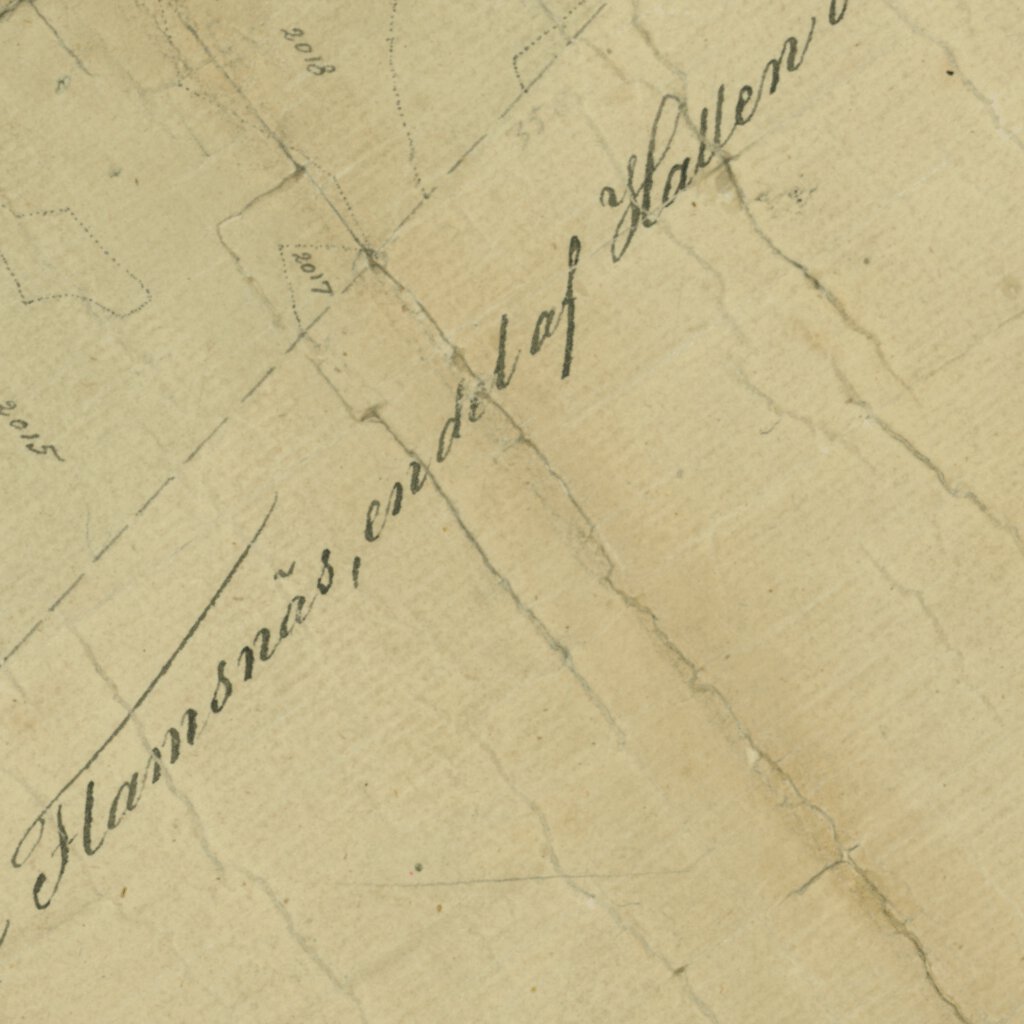 2018
2017
2015
Flamsnäs, en del af Hallen